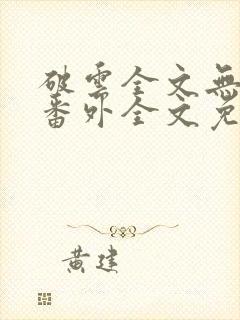 破雲全文無
番外全文免
黃建